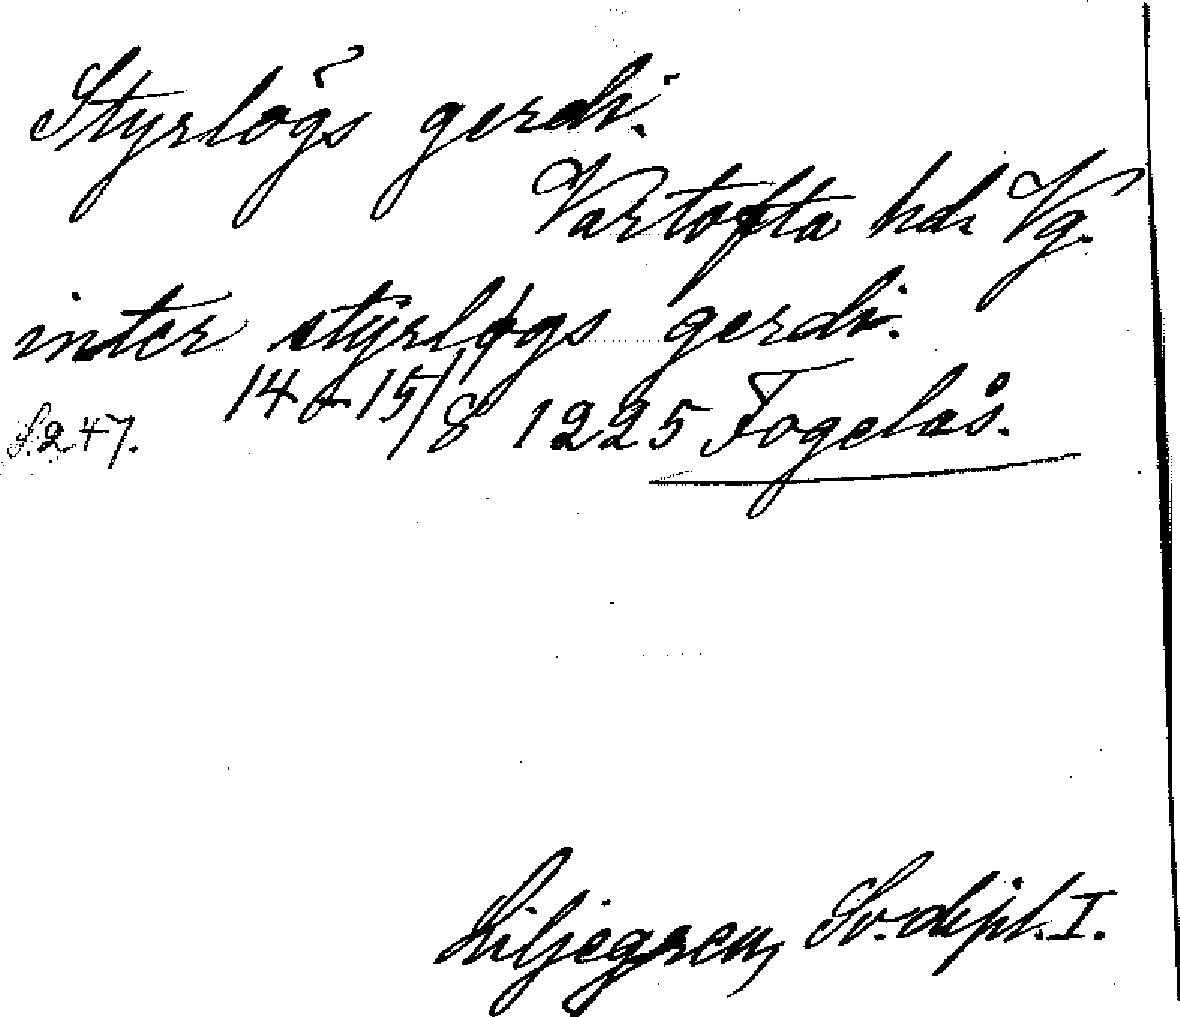 Styrløgs gerdi.
Vartofta hd. Vg.
inter styrløgs gerdi.
14 o. 15/8 1225 Fogelås.
S. 247.
Liljegren, Sv. dipl. I.